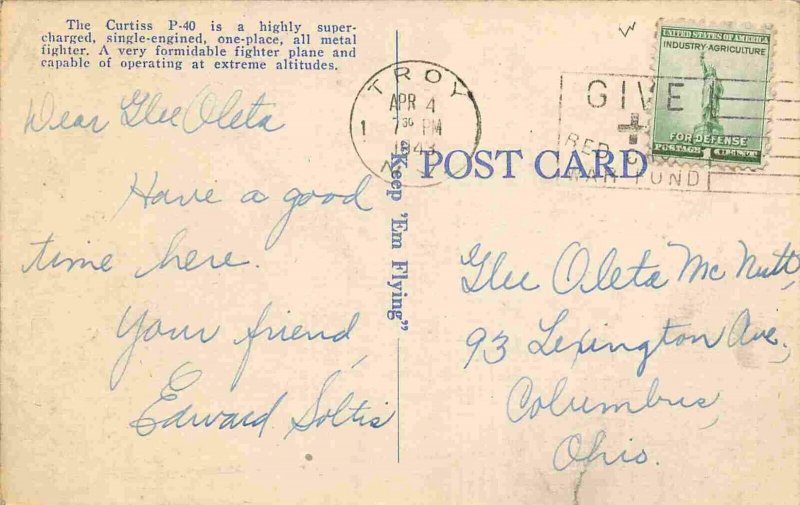 The Curtiss P-40 is a highly super-
charged, single-engined, one-place, all metal
fighter. A very formidable fighter plane and
capable of operating at extreme altitudes.
W
TROY
APR 4
1 7 30 PM
1943
N.Y.
GIVE
RED
WAR FUND
UNITED STATES OF AMERICA
INDUSTRY-AGRICULTURE
FOR DEFENSE
POSTAGE 1 CENT
POST CARD
"Keep 'Em Flying"
Dear Glee Oleta
Have a good
time here.
Your friend,
Edward Soltis
Glee Oleta Mc Nutt,
93 Lexington Ave.,
Columbus,
Ohio.